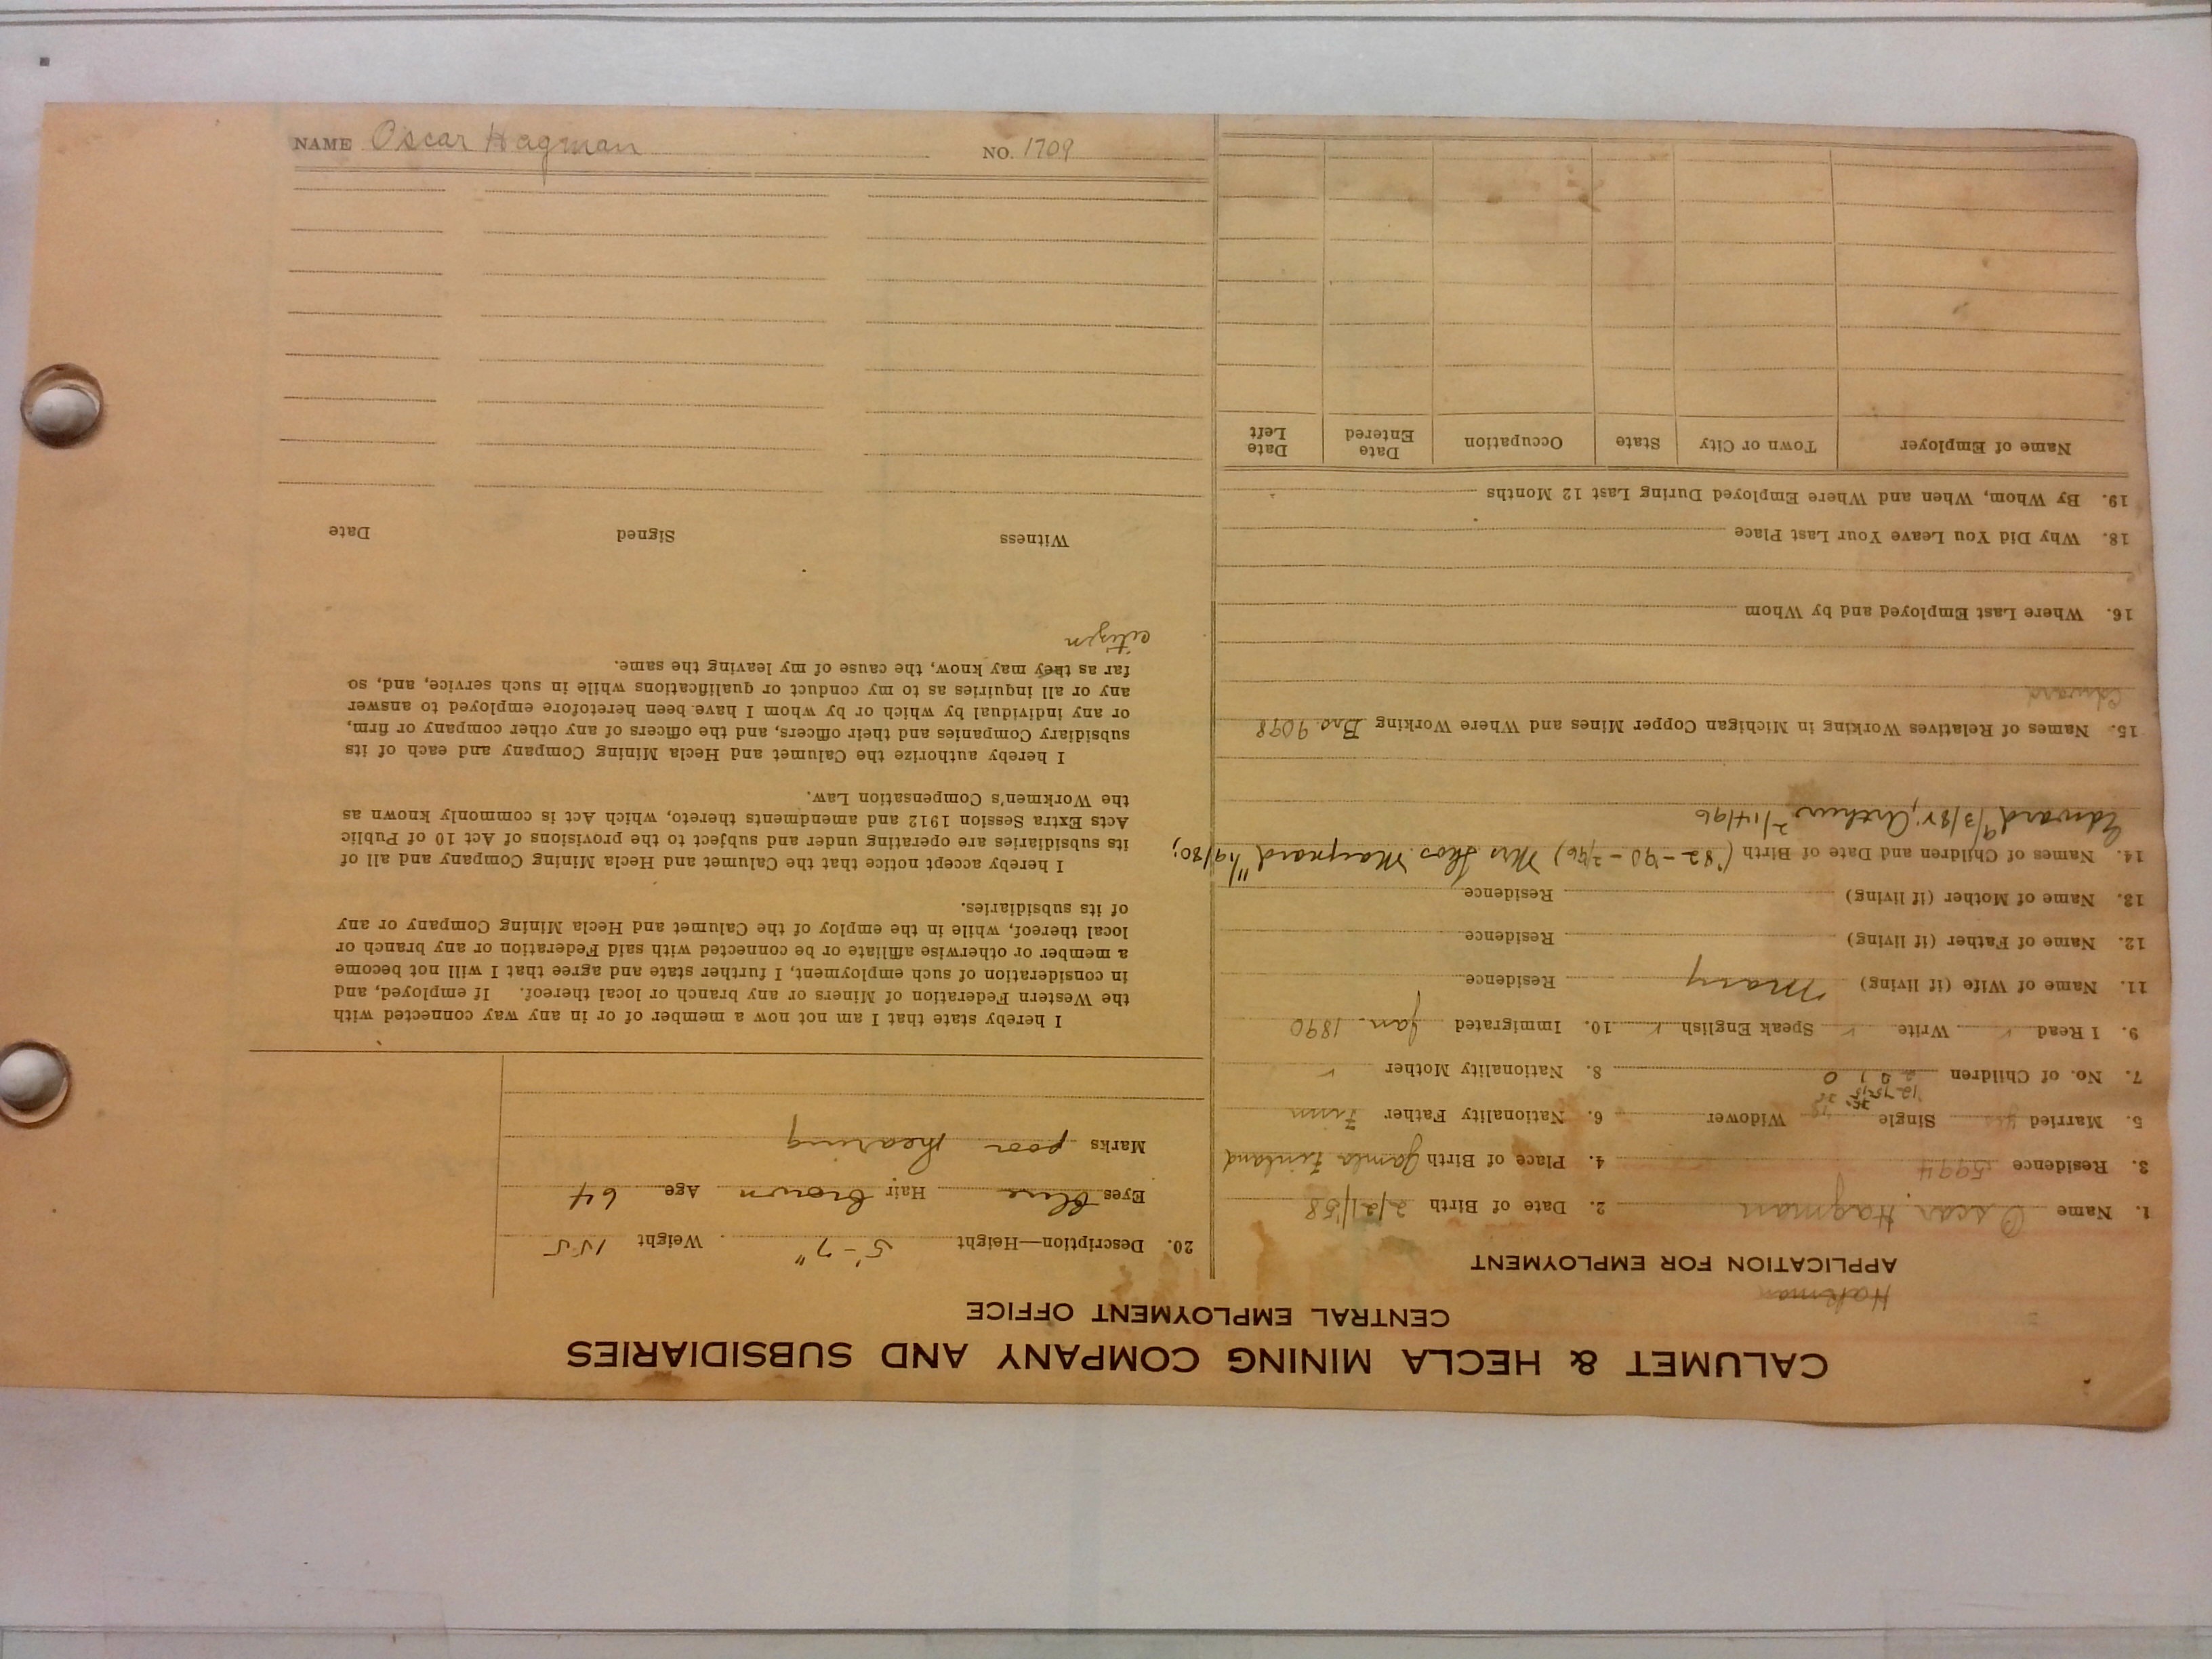 CALUMET & HECLA MINING COMPANY AND SUBSIDIARIES
CENTRAL EMPLOYMENT OFFICE
Hakman
APPLICATION FOR EMPLOYMENT
1. Name Oscar Hagman 2. Date of Birth 2/21/58
3. Residence 5994 4. Place of Birth Gamla Finland
5. Married yes Single Widower 6. Nationality Father Finn
7. No. of Children 8. Nationality Mother ✓
9. I Read ✓ Write ✓ Speak English ✓ 10. Immigrated Jan. 1890
11. Name of Wife (if living) Mary Residence
12. Name of Father (if living) Residence
13. Name of Mother (if living) Residence
14. Names of Children and Date of Birth ('82-'90-2/96) Mrs Thos. Maynard 11/19/80;
Edward 9/3/82; Arthur 2/14/96
15. Names of Relatives Working in Michigan Copper Mines and Where Working Bro. 9098
Edward
16. Where Last Employed and by Whom
18. Why Did You Leave Your Last Place
19. By Whom, When and Where Employed During Last 12 Months
Name of Employer Town or City State Occupation Date Entered Date Left
20. Description—Height 5'-7" Weight 155
Eyes blue Hair brown Age 64
Marks poor hearing
I hereby state that I am not now a member of or in any way connected with
the Western Federation of Miners or any branch or local thereof. If employed, and
in consideration of such employment, I further state and agree that I will not become
a member or otherwise affiliate or be connected with said Federation or any branch or
local thereof, while in the employ of the Calumet and Hecla Mining Company or any
of its subsidiaries.
I hereby accept notice that the Calumet and Hecla Mining Company and all of
its subsidiaries are operating under and subject to the provisions of Act 10 of Public
Acts Extra Session 1912 and amendments thereto, which Act is commonly known as
the Workmen's Compensation Law.
I hereby authorize the Calumet and Hecla Mining Company and each of its
subsidiary Companies and their officers, and the officers of any other company or firm,
or any individual by which or by whom I have been heretofore employed to answer
any or all inquiries as to my conduct or qualifications while in such service, and, so
far as they may know, the cause of my leaving the same.
citizen
Witness Signed Date
NAME Oscar Hagman NO. 1709